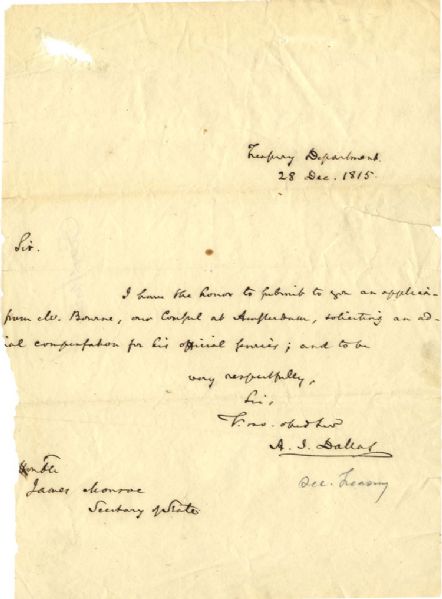 Treasury Department.
28 Dec. 1815.
Sir.
I have the honor to submit to you an applica-
from Mr. Bourne, our Consul at Amsterdam, soliciting an ad-
ial compensation for his official services; and to be
very respectfully,
Sir,
Yr. mo. obed Serv
A. J. Dallas
Sec. Treasury
onble
James Monroe
Secretary of State